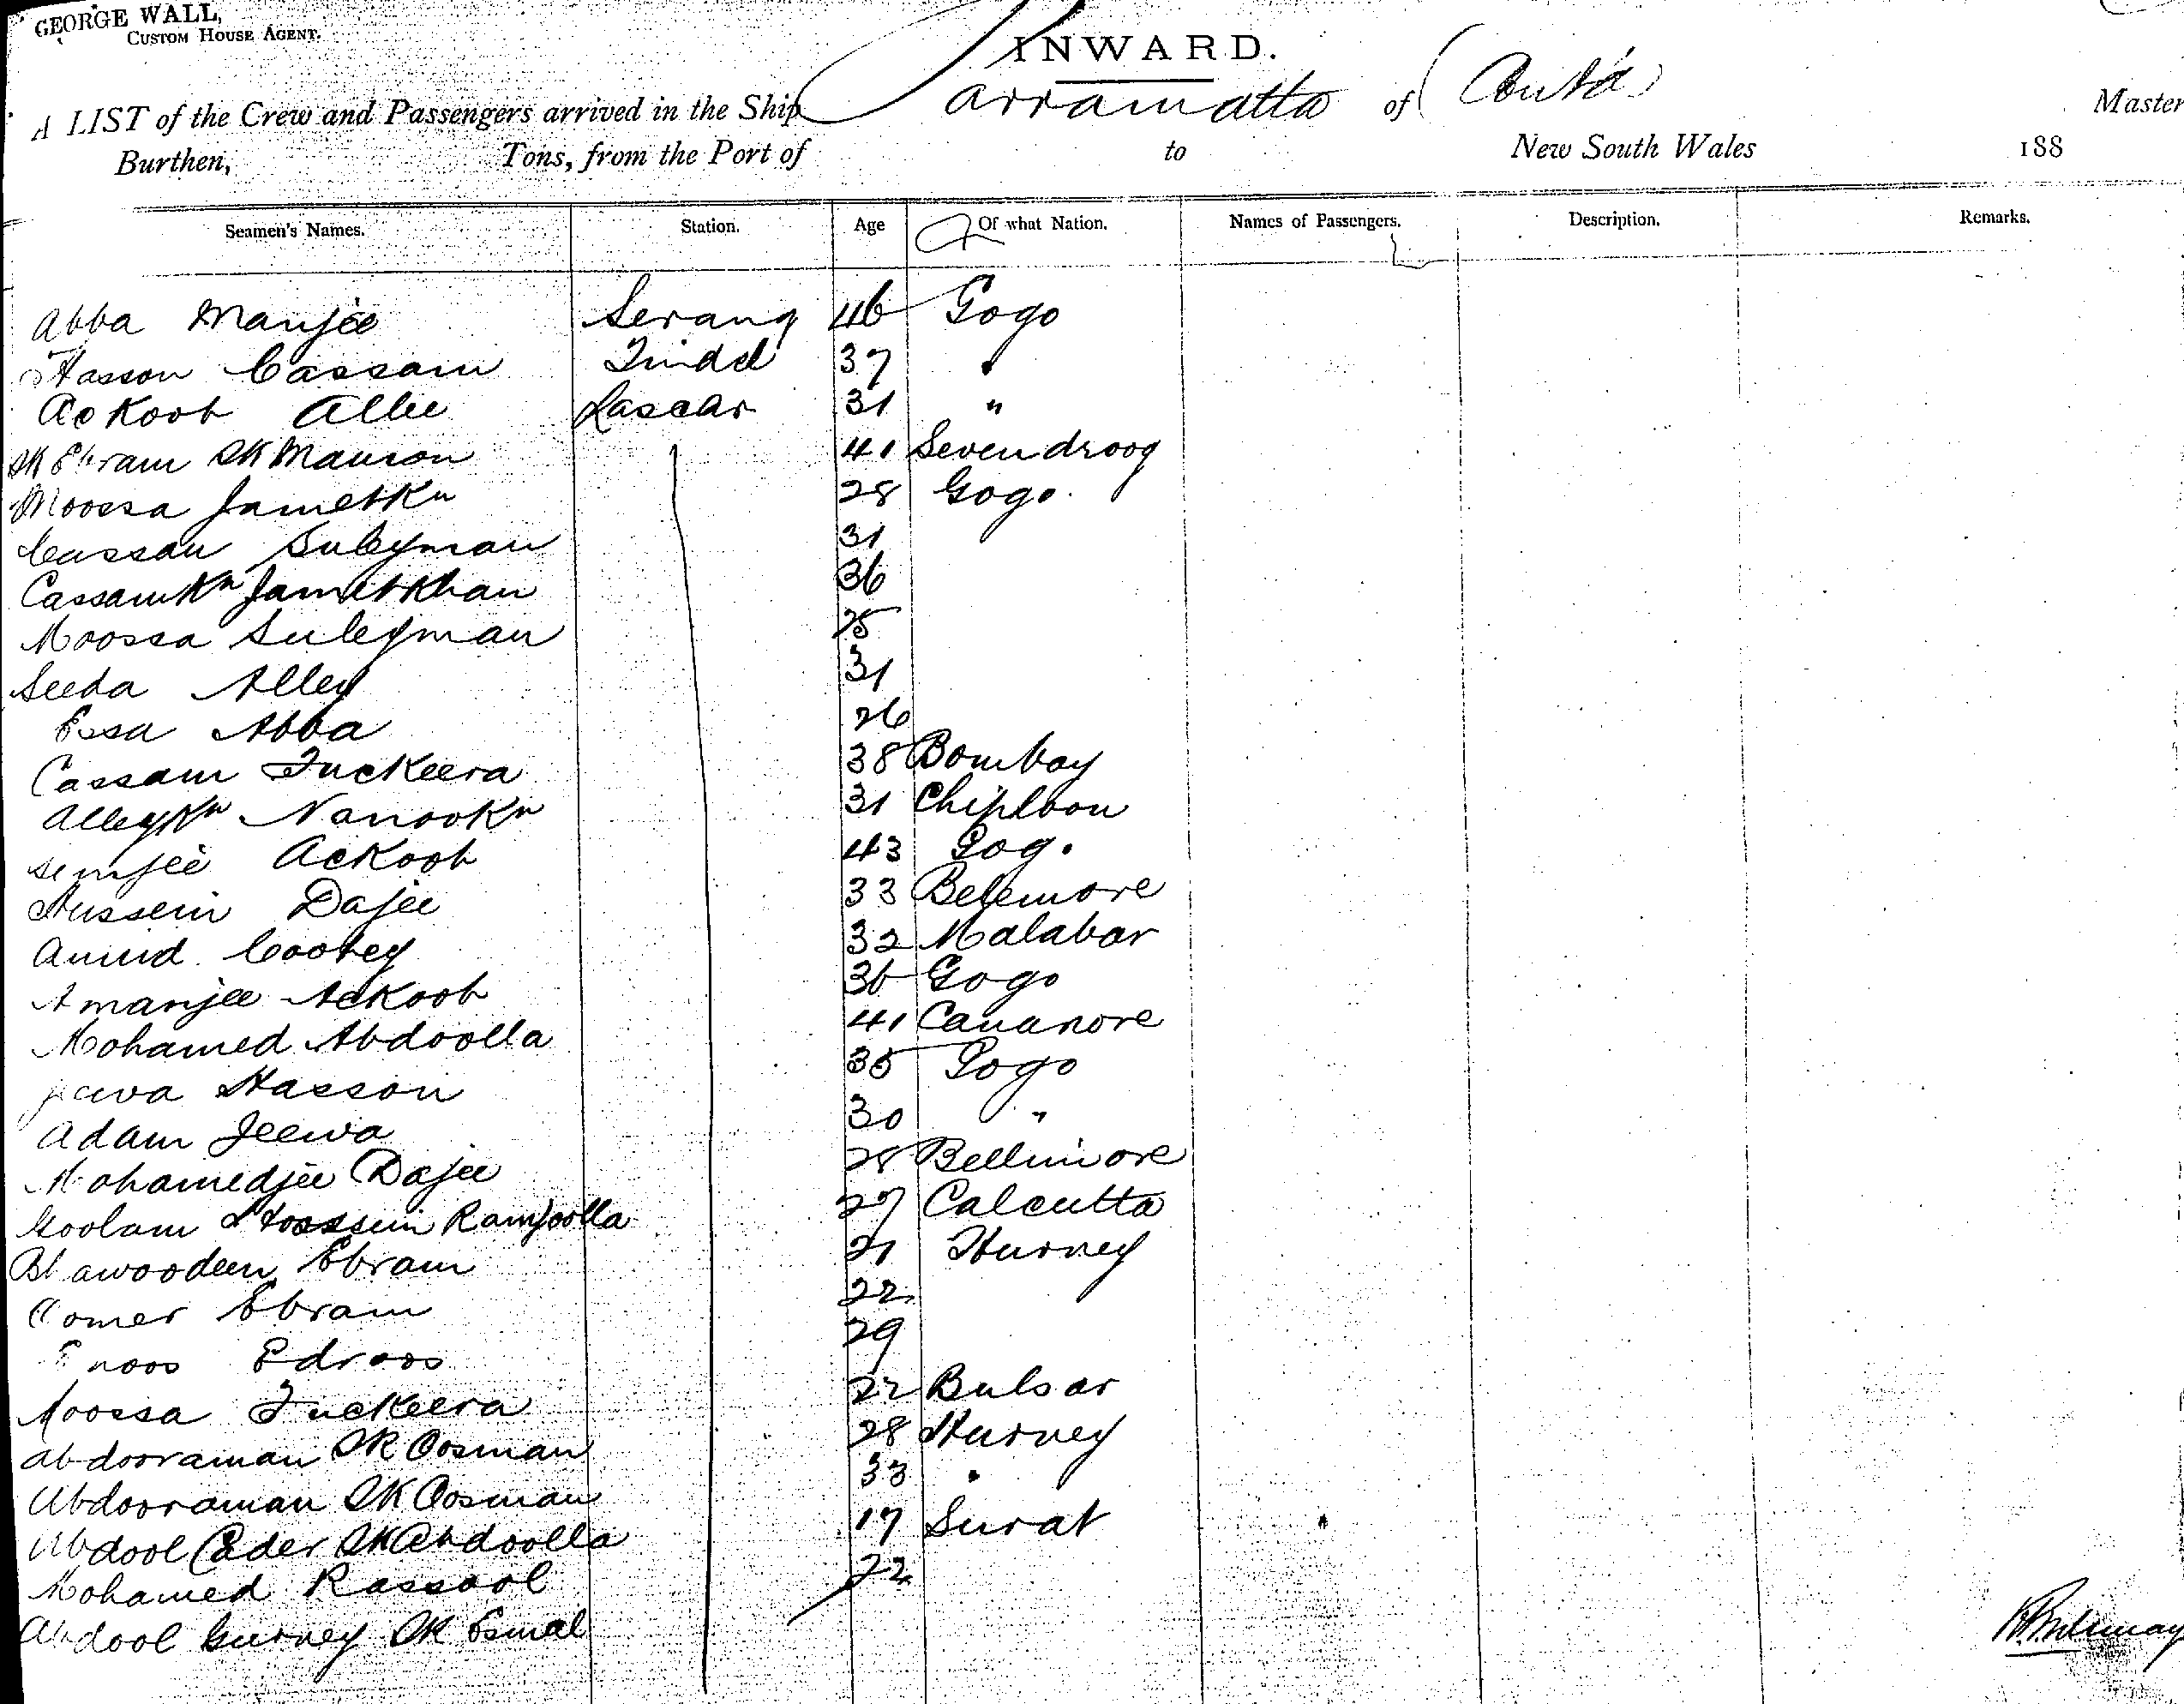 GEORGE WALL,
CUSTOM HOUSE AGENT.
INWARD.
A LIST of the Crew and Passengers arrived in the Ship Parramatta of (Contd) Master
Burthen, Tons, from the Port of to New South Wales 188
Seamen's Names. Station. Age Of what Nation. Names of Passengers. Description. Remarks.
Abba Manjee Serang 46 Gogo
Hasson Cassam Tindel 37 "
Ackoob Allee Lascar 31 "
SK Ebram SK Manson 41 Sevendroog
Moossa JametKn 28 Gogo.
Cassau Suleyman 31
CassamKn JametKhan 36
Moossa Suleyman 25
Seeda Alley 31
Essa Abba 26
Cassam Fuckeera 38 Bombay
AlleyKn NanooKn 31 Chiploon
Ackoob 43 Gogo
Hussein Dajee 33 Belemore
Amud Cootey 32 Malabar
Amanjee Ackoob 36 Gogo
Mohamed Abdoolla 41 Cananore
Hasson 35 Gogo
Adam Jeewa 30 "
Mohamedjee Dajee 28 Bellimore
Goolam Hosssein Ramjoolla 27 Calcutta
Bhawoodeen Ebram 21 Hurney
Oomer Ebram 22
Enoos Edroos 29
Moossa Fuckeera 22 Bulsar
Abdooraman SK Oosman 28 Hurney
Abdooraman SK Oosman 33 "
Abdool Cader SK Abdoolla 17 Surat
Mohamed Rassool 22
Abdool Gurney SK Esmal